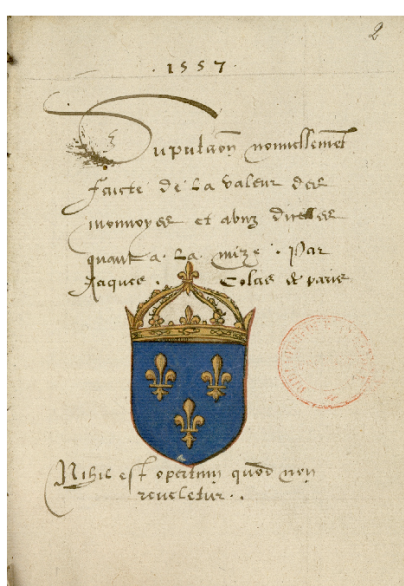 2
. 1557 .
Suputaōn nouuellement
faicte de la valeur des
monnoyes et abuz dicelles
quant a la mize . Par
Jaques . Colas de paris
Nihil est opertum quod non
reueletur . .